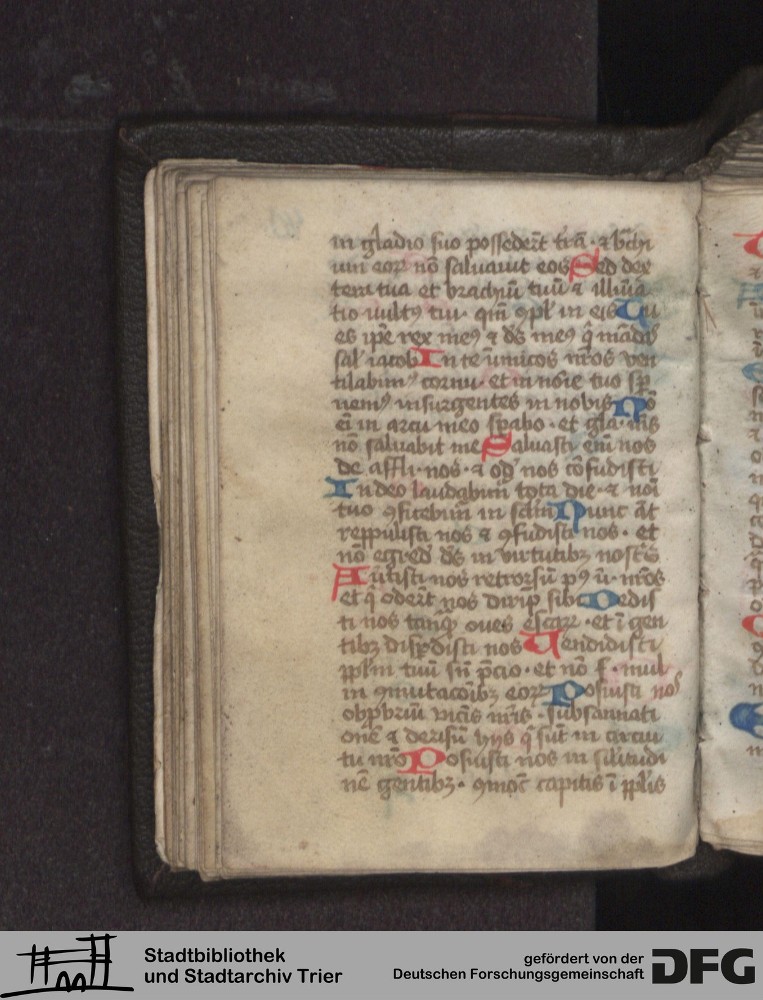 in gladio suo possedert̄ tr̄ā · ⁊ bͣchi
um eoꝝ nō saluauit eos Sed dex
tera tua et brachiū tuū ⁊ illīna
tio uultꝰ tui · qm̄ ꝯpl' in eis Tu
es ip̄e rex meꝰ ⁊ ds̄ meꝰ q̄ mādas
sal' iacob In te inimicos nr̄os ven
tilabimꝰ cornu · et in noīe tuo sp̄
nemꝰ insurgentes in nobis Nō
eī in arcu meo spabo · et gla · ms
nō saluabit me Saluasti em̄ nos
de affli · nos · ⁊ od nos cōfudisti
In deo laudabim̄ tota die · ⁊ noī
tuo ꝯfitebim̄ in sclm̄ Nunc āt
reppulisti nos ⁊ ꝯfudisti nos · et
nō egred ds̄ in virtutibꝫ nostis
Auūtisti nos retrorsū pꝰ ū · nr̄os
et q̄ odert̄ nos dirip̄ sibi Dedis
ti nos tanqͣ oues escaꝝ · et ī gen
tibꝫ disꝑdisti nos Uendidisti
ppl̄m tuū sn̄ p̄cio · et nō f · mul
in ꝯmutacōibꝫ eoꝝ Posuisti nos
obprbriū vicis nr̄is · subsannati
onē ⁊ derisū hijs q̄ sūt in circui
tu nr̄o Posuisti nos in silitudi
nē gentibꝫ · ꝯmoc̄ capitis ī ppl̄is
Stadtbibliothek
und Stadtarchiv Trier
gefördert von der
Deutschen Forschungsgemeinschaft
DFG